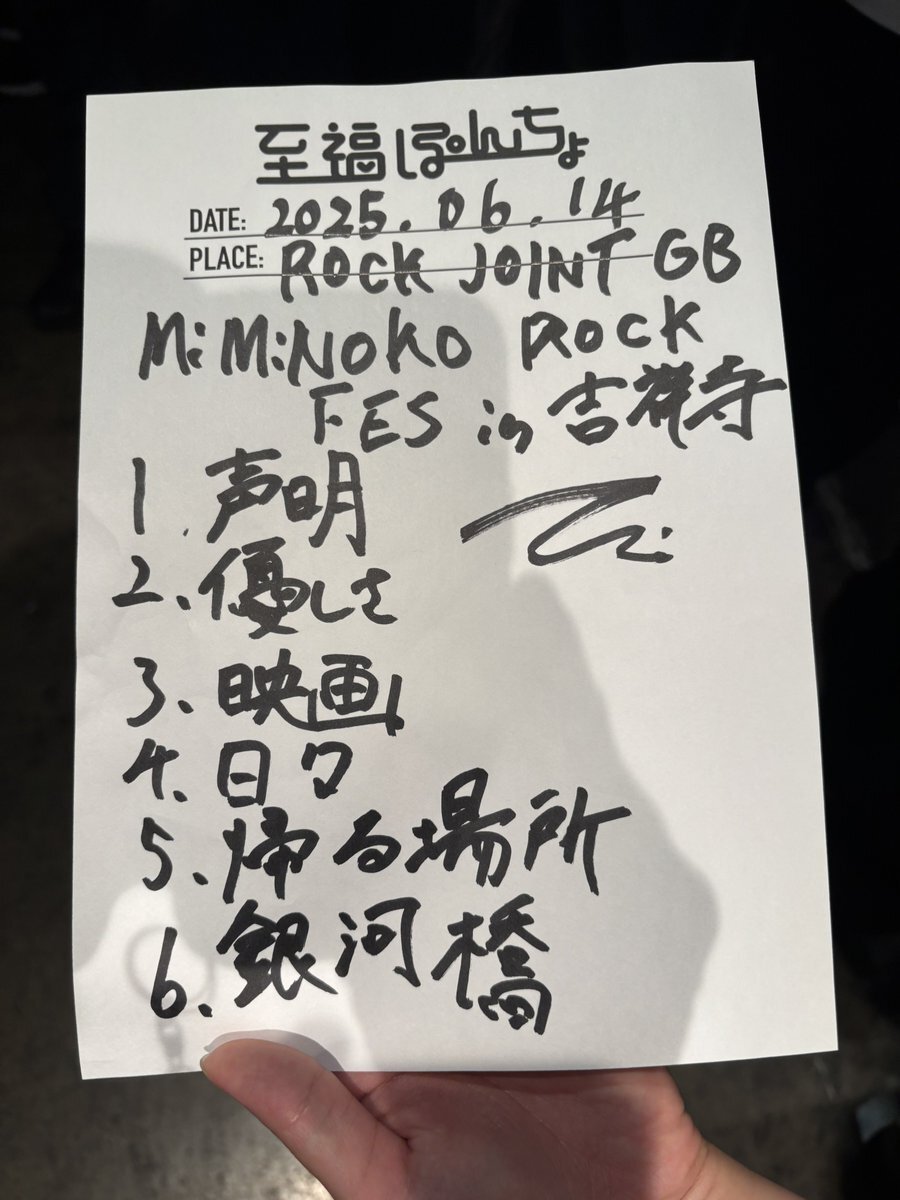 至福ぽんちょ
DATE: 2025.06.14
PLACE: ROCK JOINT GB
MiMiNOKO ROCK
FES in 吉祥寺
1.声明
2.優しさ
3.映画
4.日々
5.帰る場所
6.銀河橋